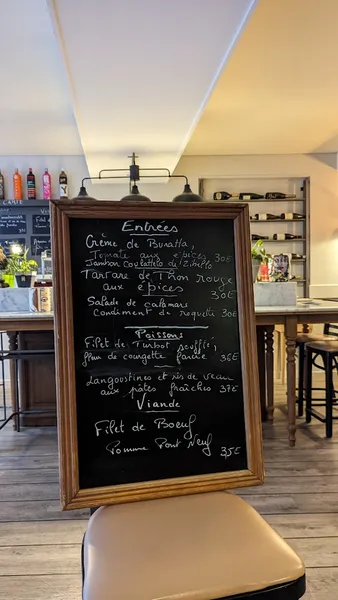 Entrées
Crème de Buratta,
Tomate aux épices 30€
Jambon Coustelleto de Zibello
Tartare de Thon rouge
aux épices 30€
Salade de calamars
condiment de roquette 30€
Poissons
Filet de Turbot soufflé,
flan de courgette farcie 36€
Langoustines et ris de veau
aux pâtes fraîches 37€
Viande
Filet de Boeuf
Pomme Pont Neuf 35€
CARTE